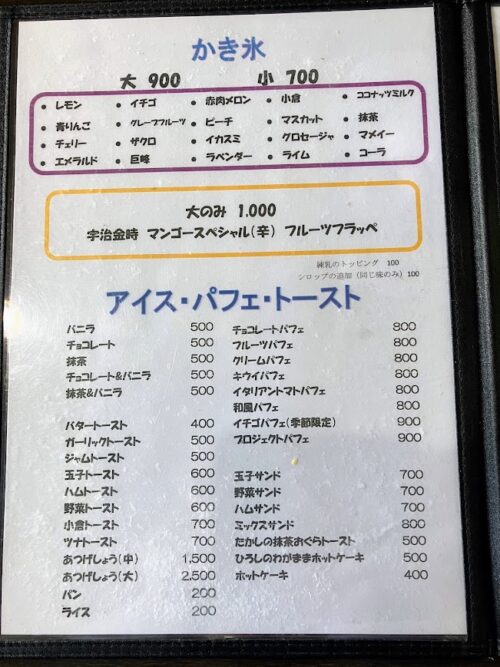 かき氷
大 900 小 700
• レモン • イチゴ • 赤肉メロン • 小倉 • ココナッツミルク
• 青りんご • グレープフルーツ • ピーチ • マスカット • 抹茶
• チェリー • ザクロ • イカスミ • グロセージャ • マメイー
• エメラルド • 巨峰 • ラベンダー • ライム • コーラ
大のみ 1.000
宇治金時 マンゴースペシャル(辛) フルーツフラッペ
練乳のトッピング 100
シロップの追加(同じ味のみ)100
アイス・パフェ・トースト
バニラ 500
チョコレート 500
抹茶 500
チョコレート&バニラ 500
抹茶&バニラ 500
バタートースト 400
ガーリックトースト 500
ジャムトースト 500
玉子トースト 600
ハムトースト 600
野菜トースト 600
小倉トースト 700
ツナトースト 700
あつげしょう(中) 1,500
あつげしょう(大) 2,500
パン 200
ライス 200
チョコレートパフェ 800
フルーツパフェ 800
クリームパフェ 800
キウイパフェ 800
イタリアントマトパフェ 800
和風パフェ 800
イチゴパフェ(季節限定) 900
プロジェクトパフェ 900
玉子サンド 700
野菜サンド 700
ハムサンド 700
ミックスサンド 800
たかしの抹茶おぐらトースト 500
ひろしのわがままホットケーキ 500
ホットケーキ 400